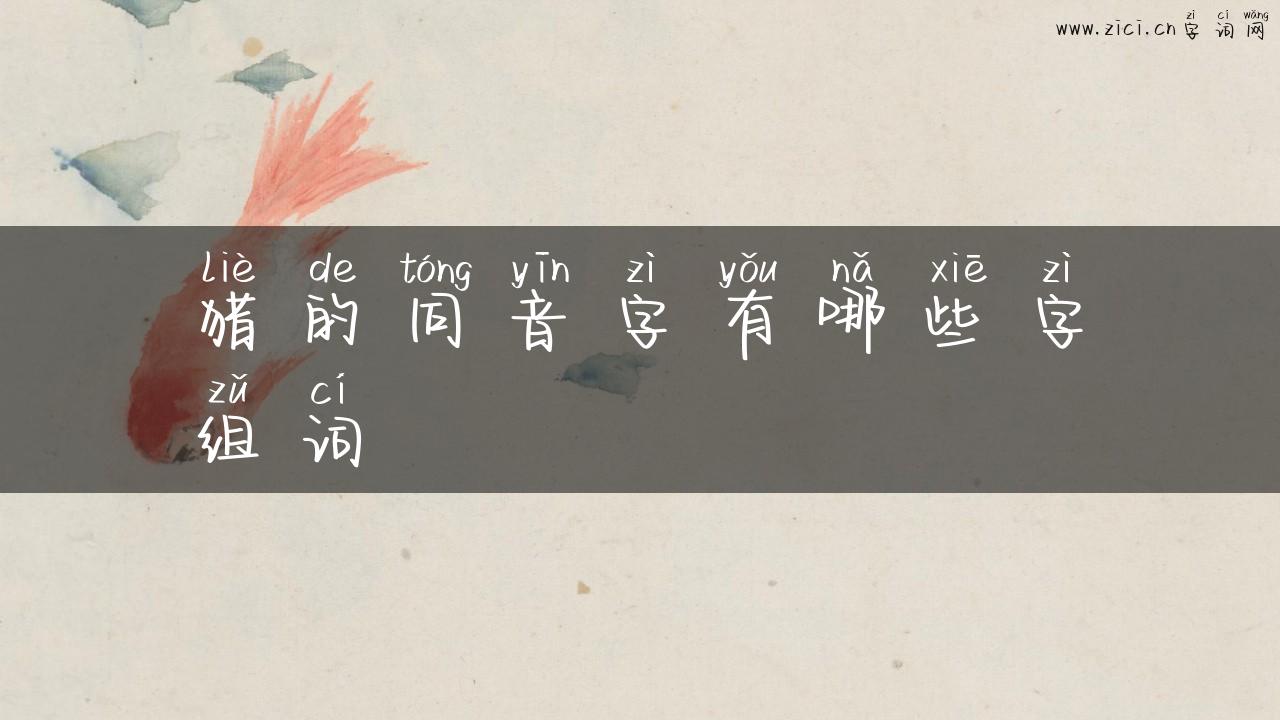 zì cí wǎng
www.zici.cn 字 词 网
liè de tóng yīn zì yǒu nǎ xiē zì
猎 的 同 音 字 有 哪 些 字
zǔ cí
组 词